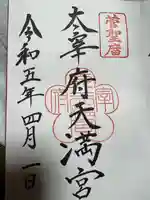 菅聖廟
太宰府天満宮
令和五年四月一日